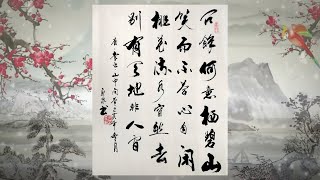 问馀何意栖碧山
笑而不答心自闲
桃花流水窅然去
别有天地非人间
唐李白山中问答
书